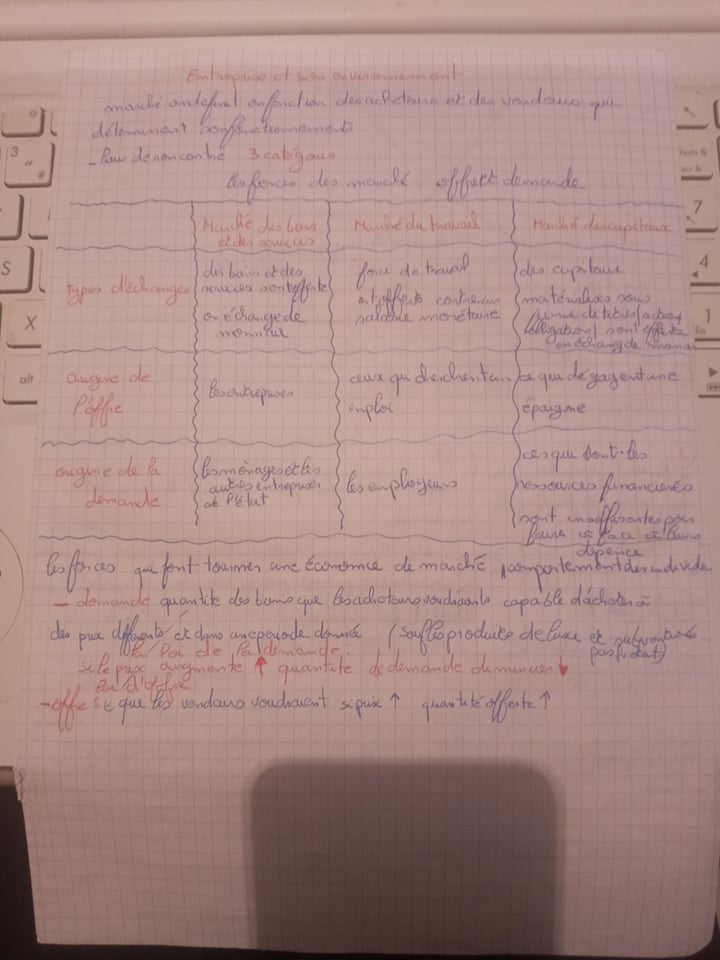 Entreprise et son environnement
marché on définit en fonction des acheteurs et des vendeurs qui
déterminent son fonctionnement
- lieu de rencontre 3 catégories
les forces des marché offre et demande
Marché des biens et des services
Marché du travail
Marché des capitaux
types d'échanges
des biens et des
services sont offerts
en échange de
monnaie
force de travail
est offerte contre un
salaire monétaire
des capitaux
matérialisés sous
forme de titres (action
obligations) sont offerts
en échange de monnaie
origine de
l'offre
les entreprises
ceux qui cherchent un
emploi
ce qui dégagent une
épargne
origine de la
demande
les ménages et les
autres entreprises
et l'État
les employeurs
ces qui dont les
ressources financières
sont insuffisantes pour
faire face à leurs
dépence
les forces que font tourner une économie de marché, comportement des individus
- demande quantité des biens que les acheteurs voudraient capable d'acheter à
des prix différents et dans une période donnée (sauf les produits de luxe et
pas l'état)
la loi de la demande:
si le prix augmente ↑ quantité de demande diminuer ↓
loi d'offre
- offre: que les vendeurs voudraient si prix ↑ quantité offerte ↑
num lk
scr lk
7
4
1
fin
3
"
S
X
alt